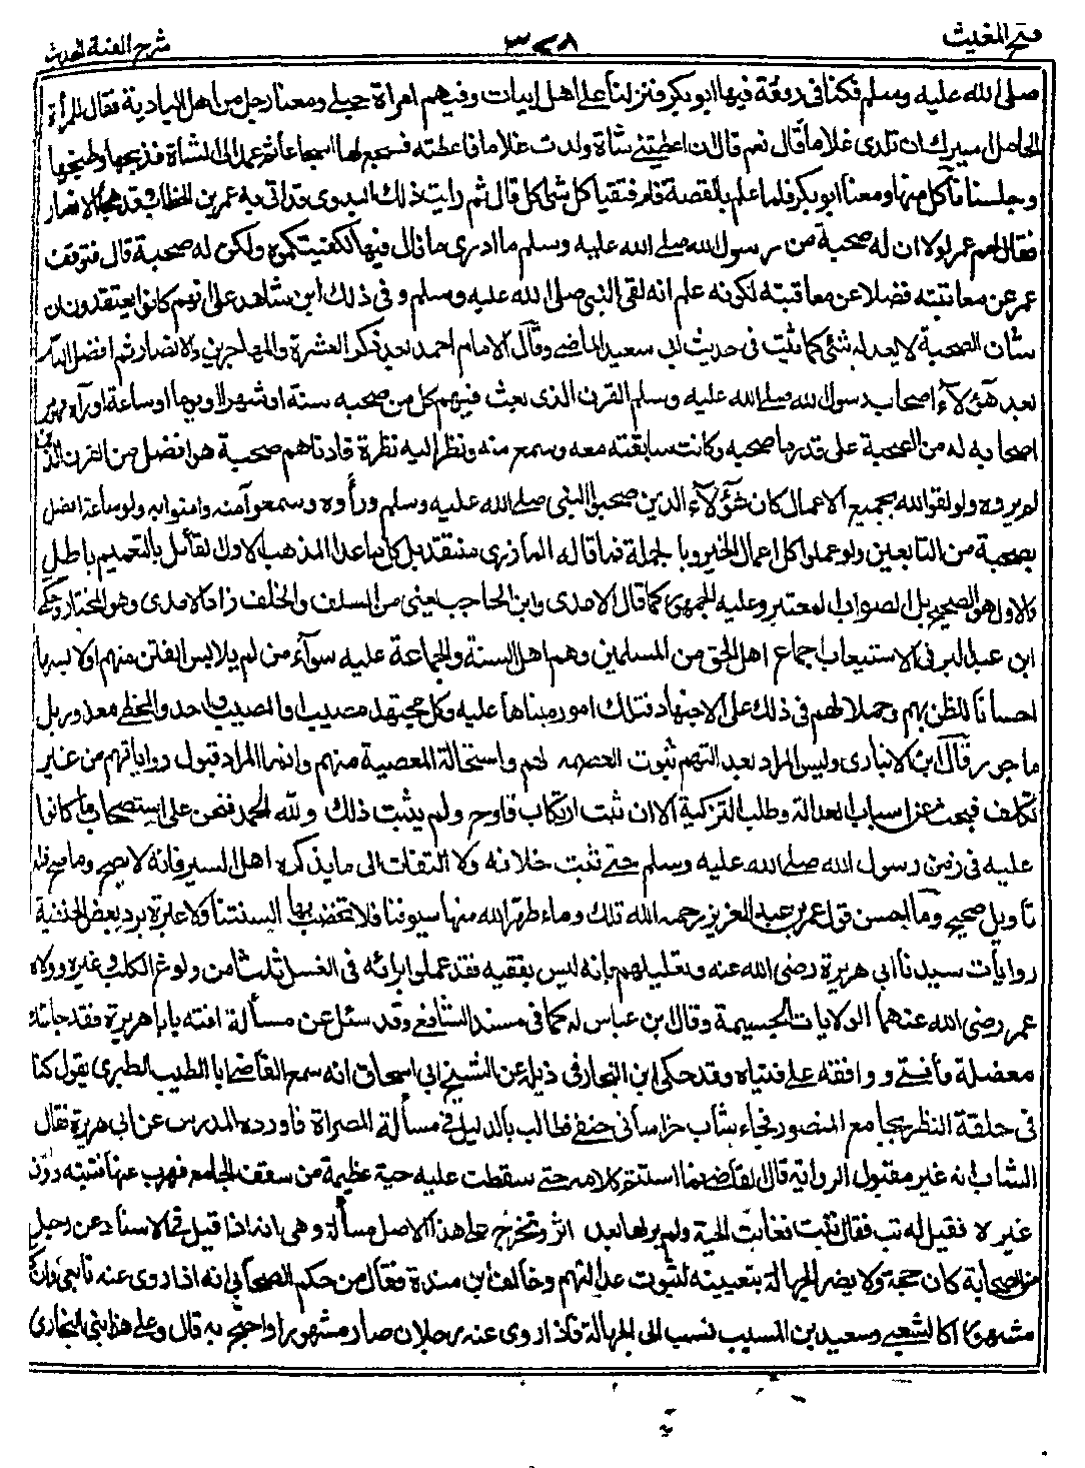 فتح المغيث
٣٧٨
شرح الفية الحديث
صلى الله عليه وسلم فكنا فى رفقة فيها ابو بكر فنزلنا على اهل ابيات وفيهم امرأة حبلى ومعنا رجل من اهل البادية فقال للمرأة
الحامل ايسرك ان تلدى غلاما قال نعم قال ان اعطيتنى شاة ولدت غلاما فاعطته فسجع لها اسجاعا ثم عمد الى الشاة فذبحها وطبخها
وجلسنا نأكل منها ومعنا ابو بكر فلما علم بالقصة قام فتقيأ كل شئ اكل قال ثم رايت ذلك البدوى قد اتى به عمر بن الخطاب وقد هجا الانصار
فقال لهم عمر لولا ان له صحبة من رسول الله صلى الله عليه وسلم ما ادرى ما نال فيها لكفيتكموه ولكن له صحبة قال فتوقف
عمر عن معاتبته فضلا عن معاقبته لكونه علم انه لقى النبى صلى الله عليه وسلم و فى ذلك ابين شاهد على انهم كانوا يعتقدون ان
شان الصحبة لا يعدله شئ كما ثبت فى حديث ابى سعيد الماضى وقال الامام احمد بعد ذكر العشرة والمهاجرين والانصار ثم افضل الناس
بعد هؤلاء اصحاب رسول الله صلى الله عليه وسلم القرن الذى بعث فيهم كل من صحبه سنة او شهرا او يوما او ساعة او رآه فهو من
اصحابه له من الصحبة على قدر ما صحبه وكانت سابقته معه وسمع منه ونظر اليه نظرة فادناهم صحبة هو افضل من القرن الذين
لم يروه ولو لقوا الله بجميع الاعمال كان هؤلاء الذين صحبوا النبى صلى الله عليه وسلم ورأوه وسمعوا منه وامنوا به ولو ساعة افضل
بصحبة من التابعين ولو عملوا كل اعمال الخير وبالجملة فما قاله المازرى منتقد بل كل ما عدا المذهب الاول القائل بالتعميم باطل
والاول هو الصحيح بل الصواب المعتبر وعليه الجمهور كما قال الامدى وابن الحاجب يعنى من السلف والخلف زاد الامدى وهو المختار وحكى
ابن عبد البر فى الاستيعاب اجماع اهل الحق من المسلمين وهم اهل السنة والجماعة عليه سوآء من لم يلابس الفتن منهم او لابسها
احسانا للظن بهم وحملا لهم فى ذلك على الاجتهاد فتلك امور مبناها عليه وكل مجتهد مصيب او المصيب واحد والمخطئ معذور بل
ماجور قال ابن الانبارى وليس المراد بعدالتهم ثبوت العصمة لهم واستحالة المعصية منهم وانما المراد قبول رواياتهم من غير
تكلف فبحث عن اسباب العدالة وطلب التزكية الا ان ثبت ارتكاب قادح ولم يثبت ذلك ولله الحمد فنحن على استصحاب ما كانوا
عليه فى زمن رسول الله صلى الله عليه وسلم حتى تثبت خلافه ولا التفات الى ما يذكره اهل السير فانه لا يصح وما صح فله
تاويل صحيح وما احسن قول عمر بن عبد العزيز رحمه الله تلك دماء طهر الله منها سيوفنا فلا نخضب بها السنتنا ولا عبرة برد بعض الحنفية
روايات سيدنا ابى هريرة رضى الله عنه وتعليلهم بانه ليس بفقيه فقد عملوا برائه فى الغسل ثلاثا من ولوغ الكلب وغيره وولاه
عمر رضى الله عنهما الولايات الجسيمة وقال ابن عباس له كما فى مسند الشافعى وقد سئل عن مسألة افته يا ابا هريرة فقد جاءتك
معضلة فأفتى ووافقه على فتياه وقد حكى ابن النجار فى ذيله عن الشيخ ابى اسحاق انه سمع القاضى ابا الطيب الطبرى يقول كنا
فى حلقة النظر بجامع المنصور فجاء شاب خراسانى حنفى فطالب بالدليل فى مسألة المصراة فاورده المدرس عن ابى هريرة فقال
الشاب انه غير مقبول الرواية قال القاضى فما استتم كلامه حتى سقطت عليه حية عظيمة من سقف الجامع فهرب عنها فتبعته دون
غيره فقيل له تب فقال تبت فغابت الحية ولم ير لها بعد اثر وتخرج على هذا الاصل مسألة وهى انه اذا قيل فى الاسناد عن رجل
من الصحابة كان حجة ولا يضر الجهالة بتعيينه لثبوت عدالتهم وخالف ابن مندة فقال من حكم الصحابى انه اذا روى عنه تابعى وان كان
مشهورا كالشعبى وسعيد بن المسيب نسب الى الجهالة فاذا روى عنه رجلان صار مشهورا واحتج به قال وعلى هذا بنى البخارى